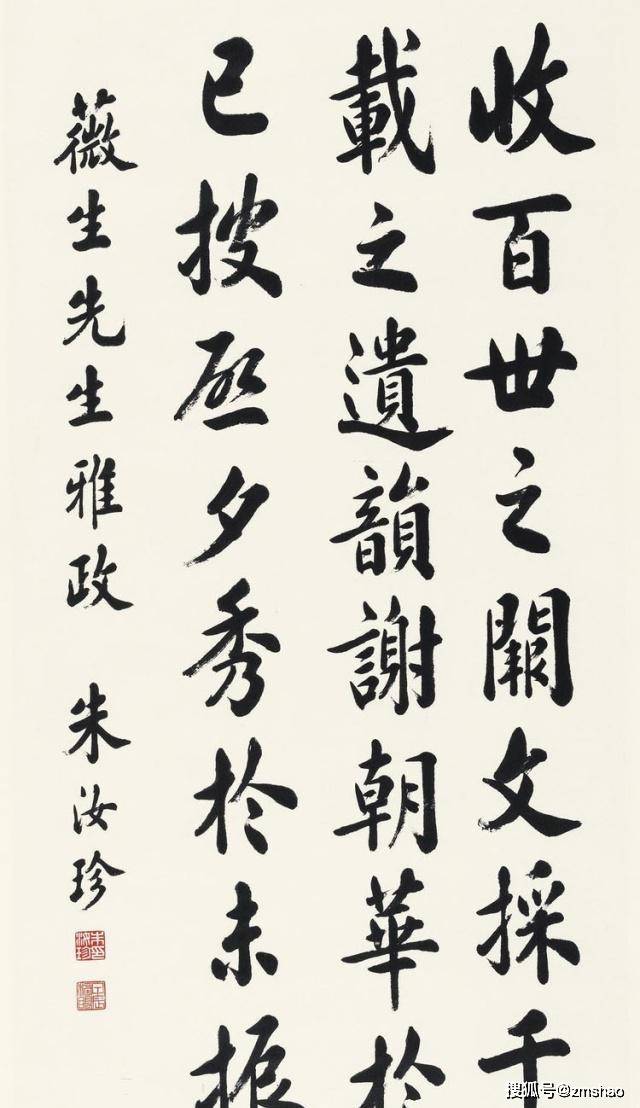 收百世之闕文採千
載之遺韻謝朝華於
已披啟夕秀於未振
薇生先生雅政 朱汝珍
搜狐号@zmshao